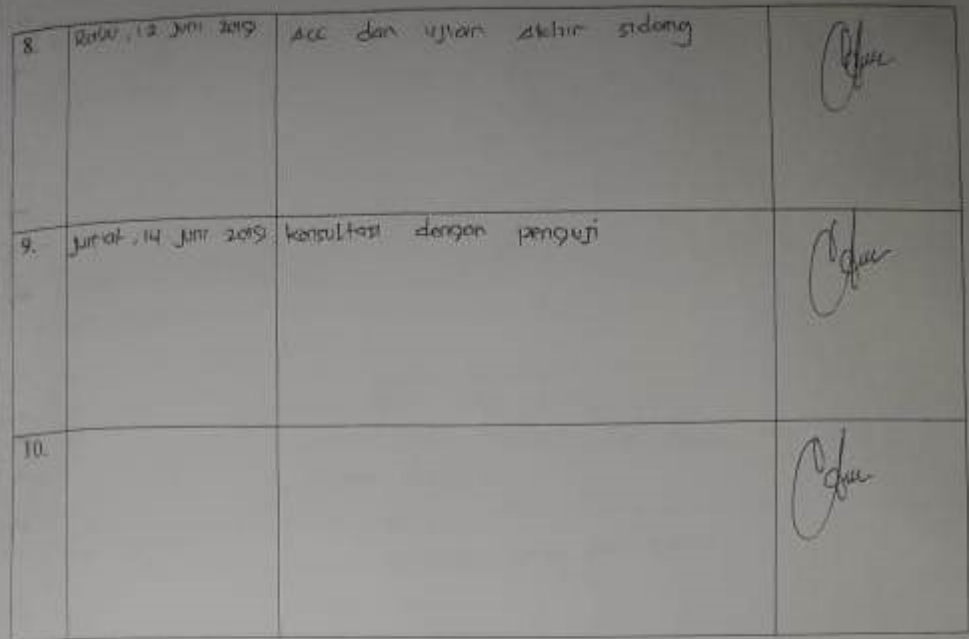 8. Rabu, 12 Juni 2019 Acc dan ujian Akhir sidang
9. Jum'at, 14 Juni 2019 konsultasi dengan penguji
10.